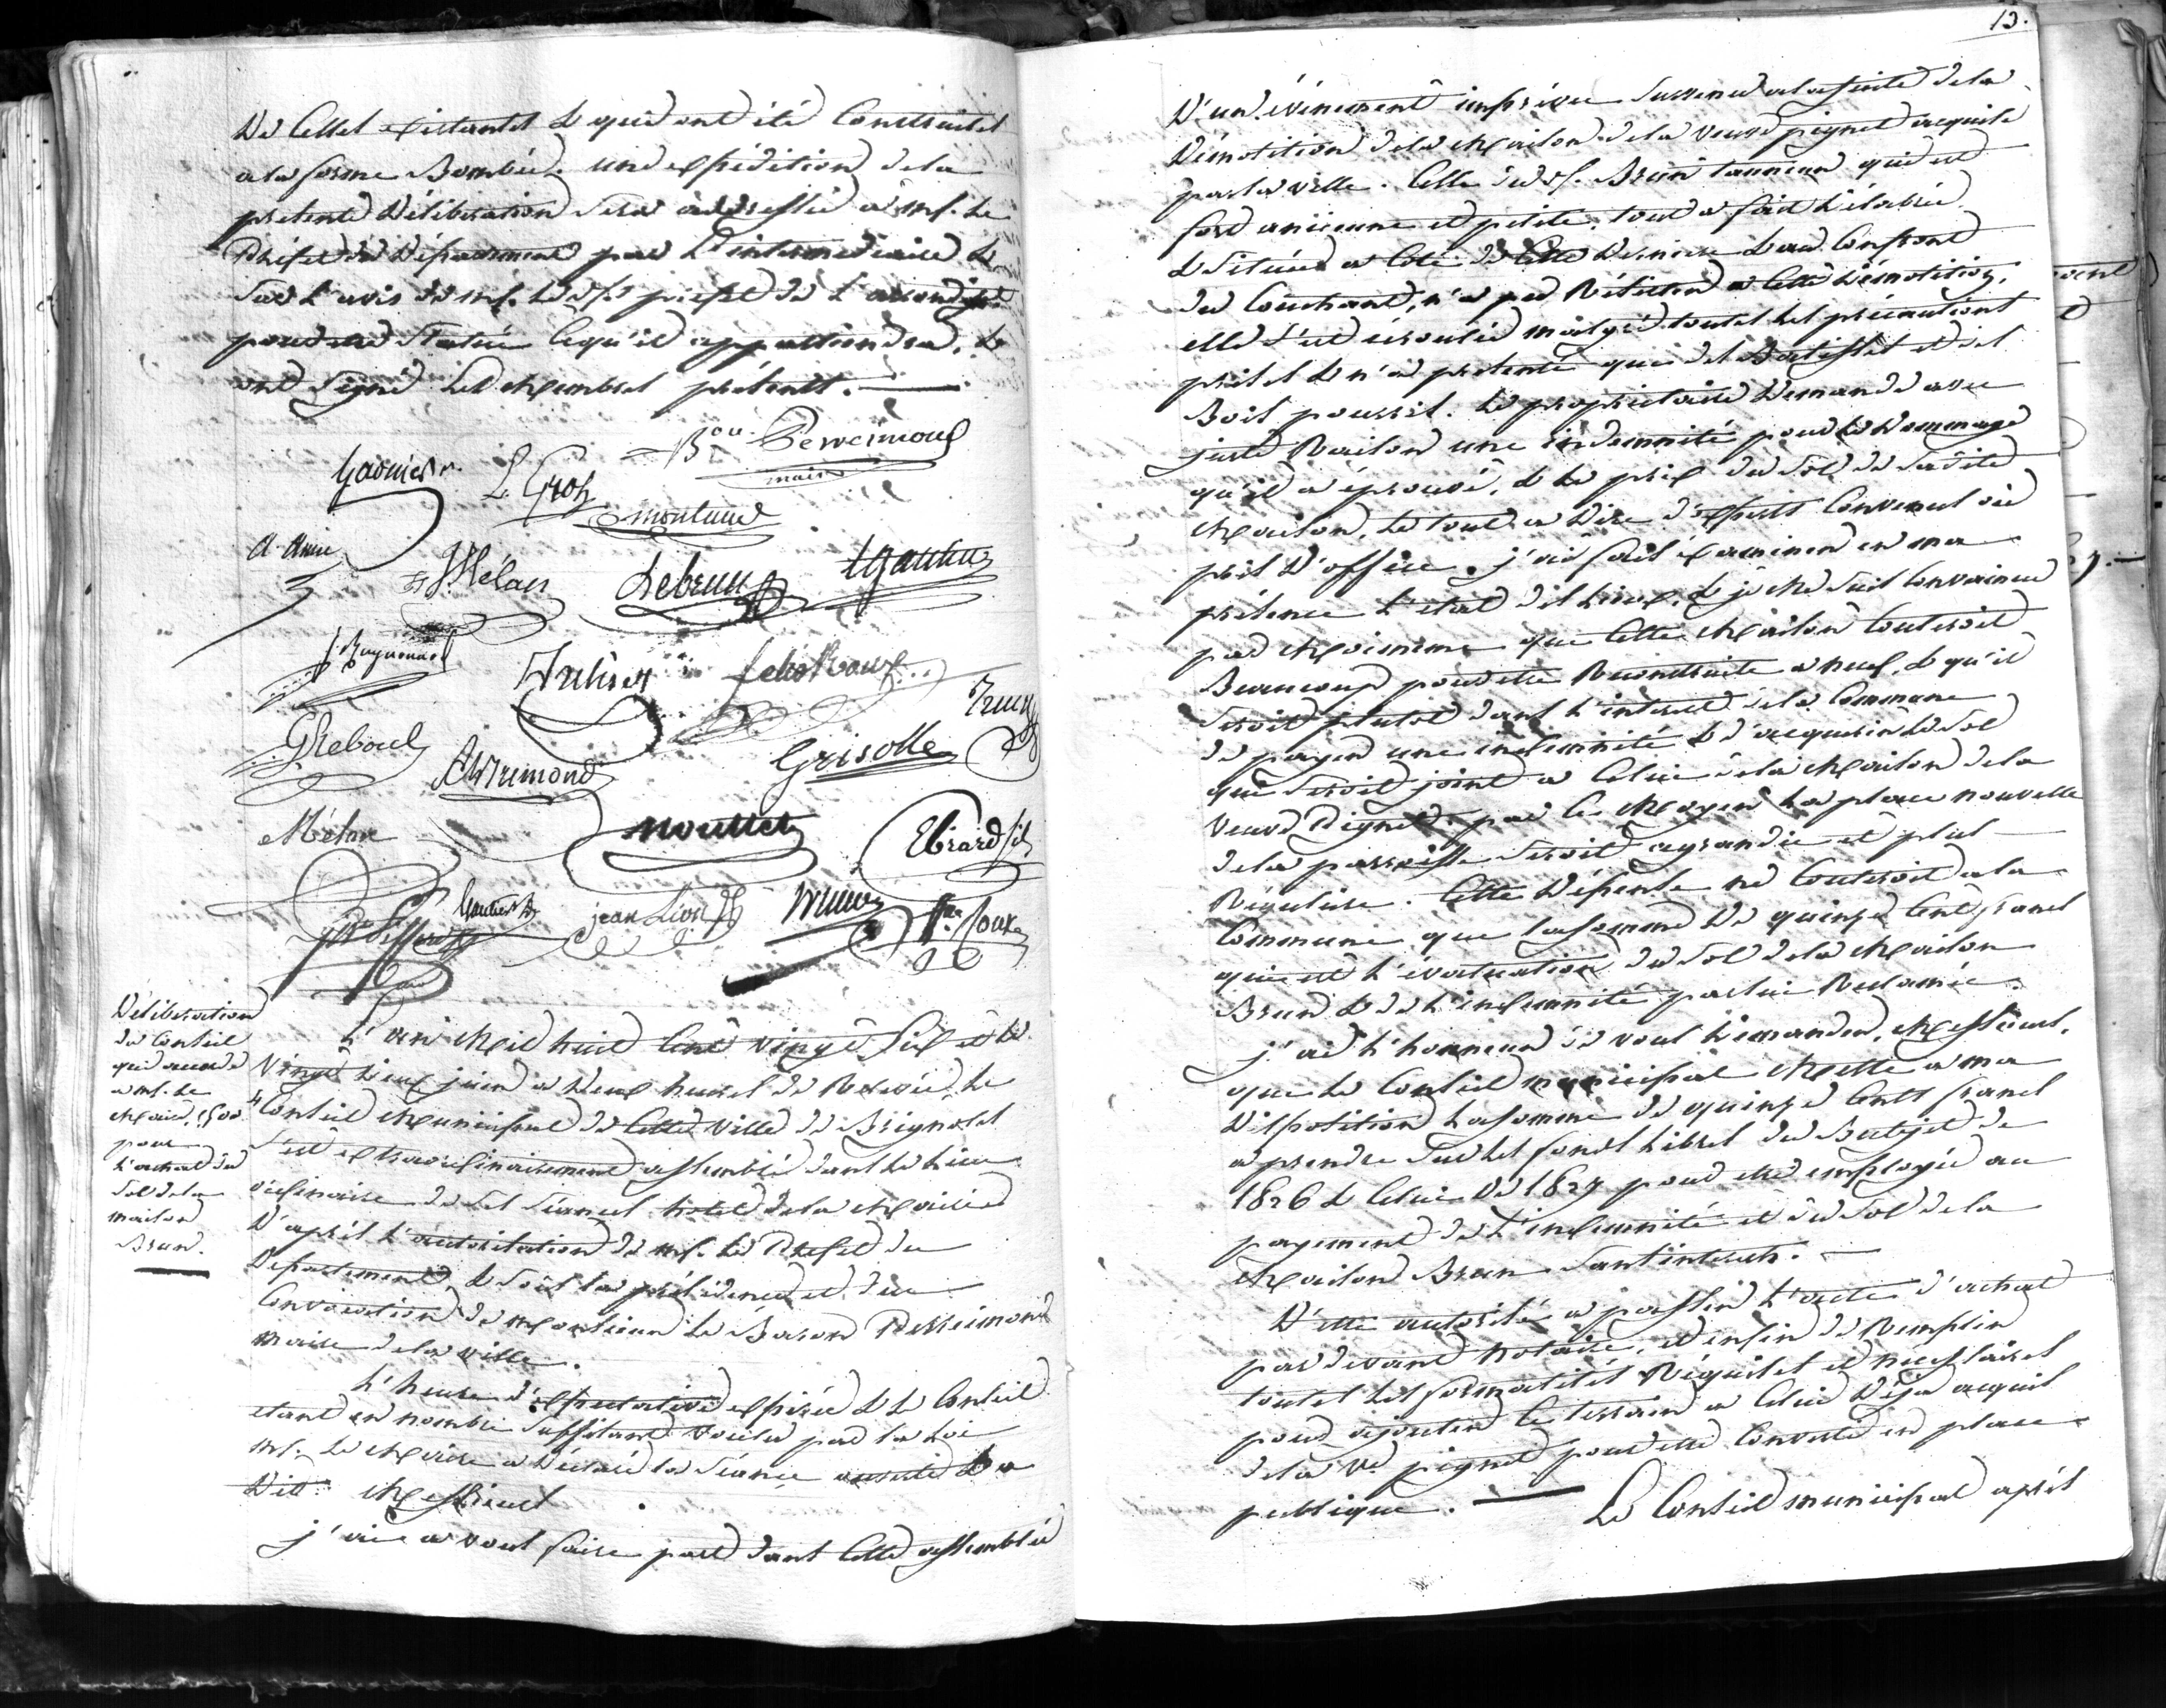 De Celles existantes & qui ont été Construites
a la forme Bombée. une expédition de la
présente Délibération sera adressée à mr. Le
Préfet du Département par L'intermédiaire &
Sur L'avis de mr. Le Ss. préfet de L'arrondisst
pour être Statué Cequ'il appartiendra. &
ont Signé Les Membres présents.
Garnier L. Gros Bon. Desseimond
maire
montaud
A. Amic
Hélan Lebrun Gautier
J. Raynouard
felix Roux
G Reboul A Dremond Grisolle
Nouttet Ebrard fils
Gautier jean Lion Brun
Délibération
du Conseil
qui accorde
a mr. Le
Maire, 1500.
pour
L'achat du
Sol de la
maison
Brun.
L'an Mil huit Cent vingt Six & le
Vingt deux juin a deux heures de Relevée, Le
Conseil Municipal de Cette ville de Brignoles
S'est extraordinairement assemblé dans Le Lieu
ordinaire de Ses Séances hotel de la Mairie
D'après L'autorisation de mr. Le Préfet du
Département, & Sous la présidence et Sur
Convocation de Monsieur Le Baron Desseimond
Maire de la Ville.
L'heure d'expectative expirée & Le Conseil
etant en nombre Suffisant Voulu par La Loi
mr. Le Maire a Déclaré La Séance ouverte & a
Dit: Messieurs
j'ai a vous faire part dans Cette assemblée
13.
D'un évènement imprévu Survenu a la suite de la
Démolition de la Maison de la veuve pignet acquise
par la ville. Celle du sr. Brun tanneur qui est
fort ancienne et petite, tout a fait Délabrée
& Située a Coté de Cette Derniere & au Confront
du Couchant, n'a pu Résister a Cette Démolition,
elle S'est écroulée malgré toutes Les précautions
prises & n'a présenté que des Batisses et des
Bois pourris. Le propriétaire Demande avec
juste Raison une indemnité pour Le Dommage
qu'il a éprouvé, & Le prix du Sol de Sadite
Maison, Le tout a Dire d'experts Convenus ou
pris D'office. j'ai fait examiner en ma
présence L'état des Lieux, & je Me Suis Convaincu
par Moi même que Cette Maison Couteroit
Beaucoup pour être Reconstruite a neuf, & qu'il
Seroit plutot dans L'interet de la Commune
de payer une indemnité & d'acquerir Le Sol
qui Seroit joint a Celui de la Maison de la
veuve Pignet. par Ce Moyen La place nouvelle
de la parroisse Seroit agrandie et plus
Régulière. Cette Dépense ne Couteroit a la
Commune que La Somme de quinze Cent francs
qui est L'évaluation du Sol de la Maison
Brun & de L'indemnité par lui Réclamée.
j'ai L'honneur de vous Demander, Messieurs,
que Le Conseil municipal Mette a ma
Disposition La Somme de quinze Cents francs
a prendre Sur Les fonds Libres du Budjet de
1826 & Celui de 1827 pour être employée au
payement de L'indemnité et du Sol de la
Maison Brun Sans interets.
D'etre autorisé a passer L'acte d'achat
par devant Notaire, et enfin de Remplir
toutes Les formalités Réquises et nécessaires
pour ajouter Ce terrain a Celui Déja acquis
de la Ve. pignet pour être Converti en place
publique.
Le Conseil municipal après